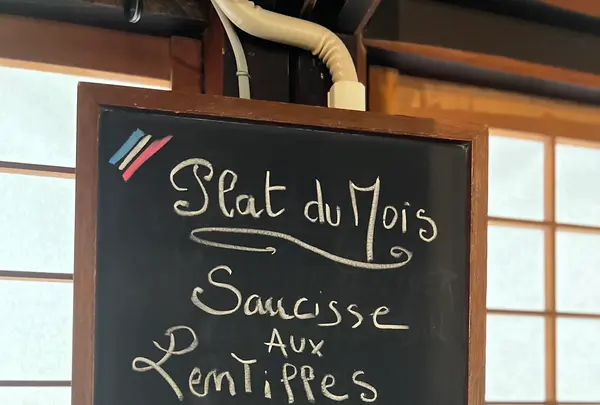 Plat du Mois
Saucisse
AUX
Lentilles